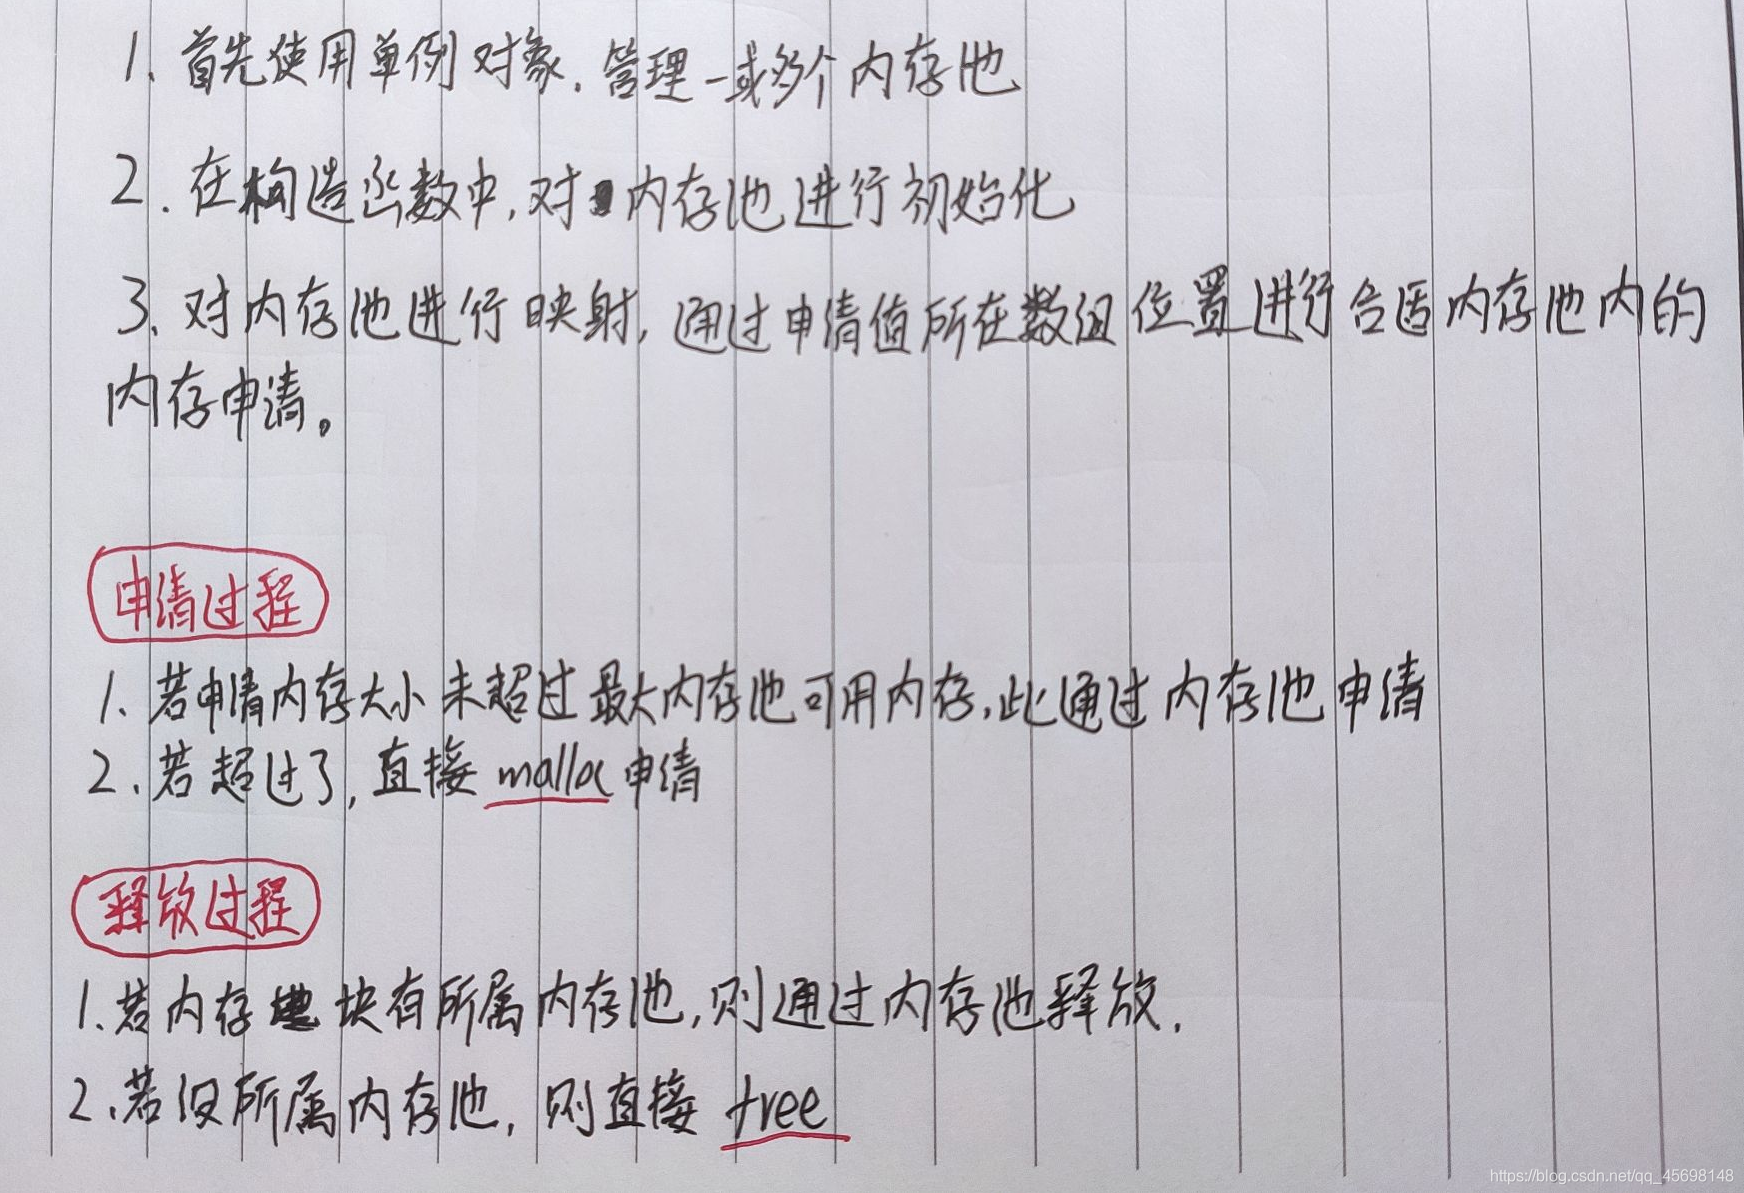 1. 首先使用单例对象.管理一或多个内存池
2. 在构造函数中,对内存池进行初始化
3. 对内存池进行映射,通过申请值所在数组位置进行合适内存池内的
内存申请。
申请过程
1. 若申请内存大小未超过最大内存池可用内存,此通过内存池申请
2. 若超过了,直接malloc申请
释放过程
1. 若内存块有所属内存池,则通过内存池释放.
2. 若没所属内存池,则直接free
https://blog.csdn.net/qq_45698148